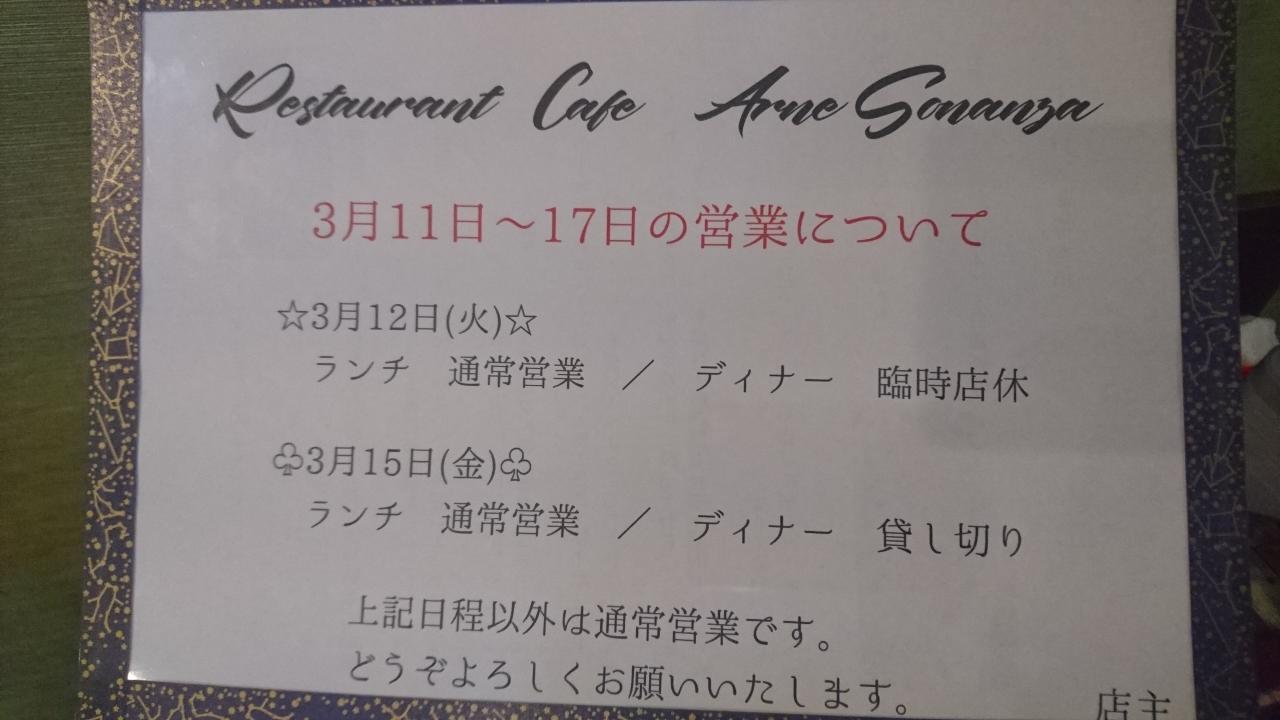 Restaurant Cafe Arne Sonanza
3月11日～17日の営業について
☆3月12日(火)☆
ランチ 通常営業 ／ ディナー 臨時店休
♧3月15日(金)♧
ランチ 通常営業 ／ ディナー 貸し切り
上記日程以外は通常営業です。
どうぞよろしくお願いいたします。
店主